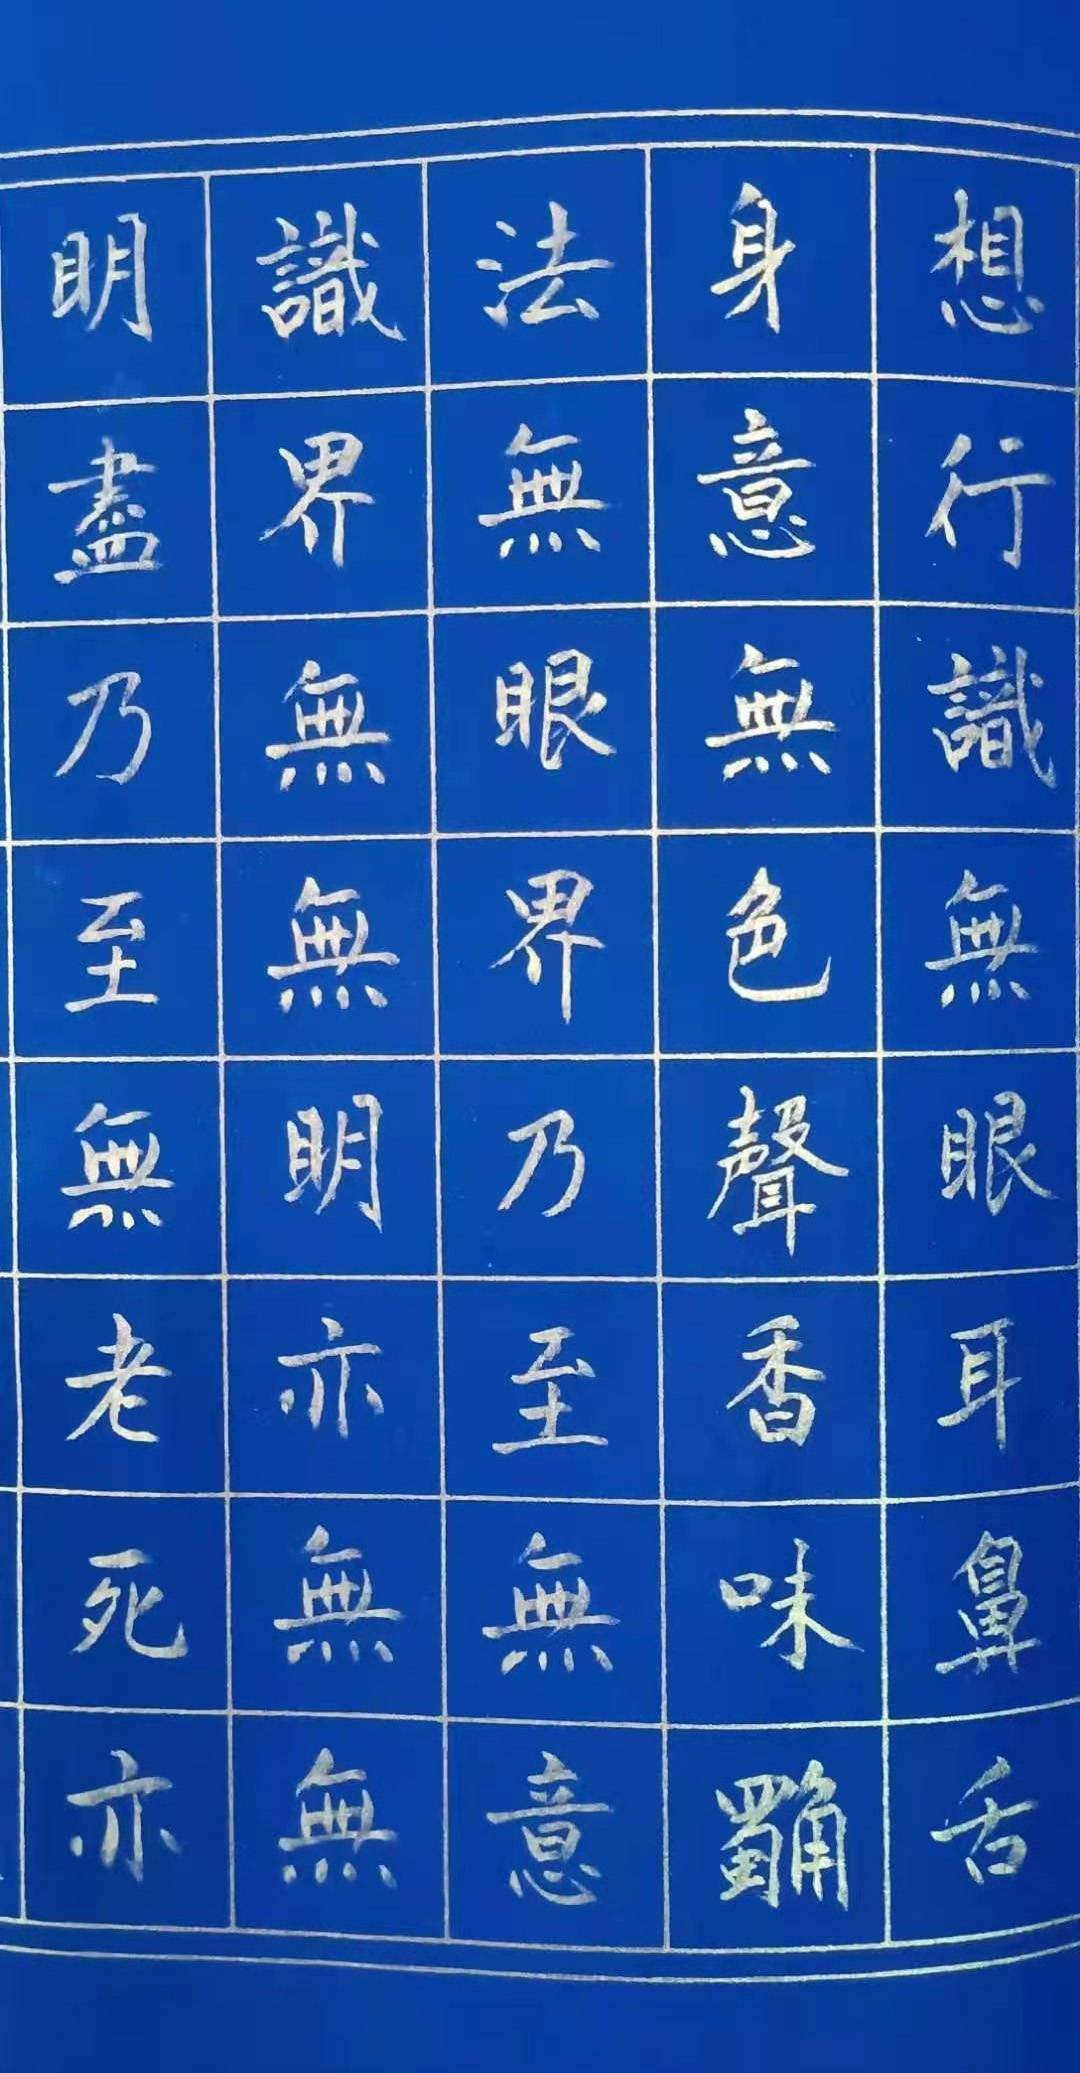 想行識無眼耳鼻舌
身意無色聲香味觸
法無眼界乃至無意
識界無無明亦無無
明盡乃至無老死亦